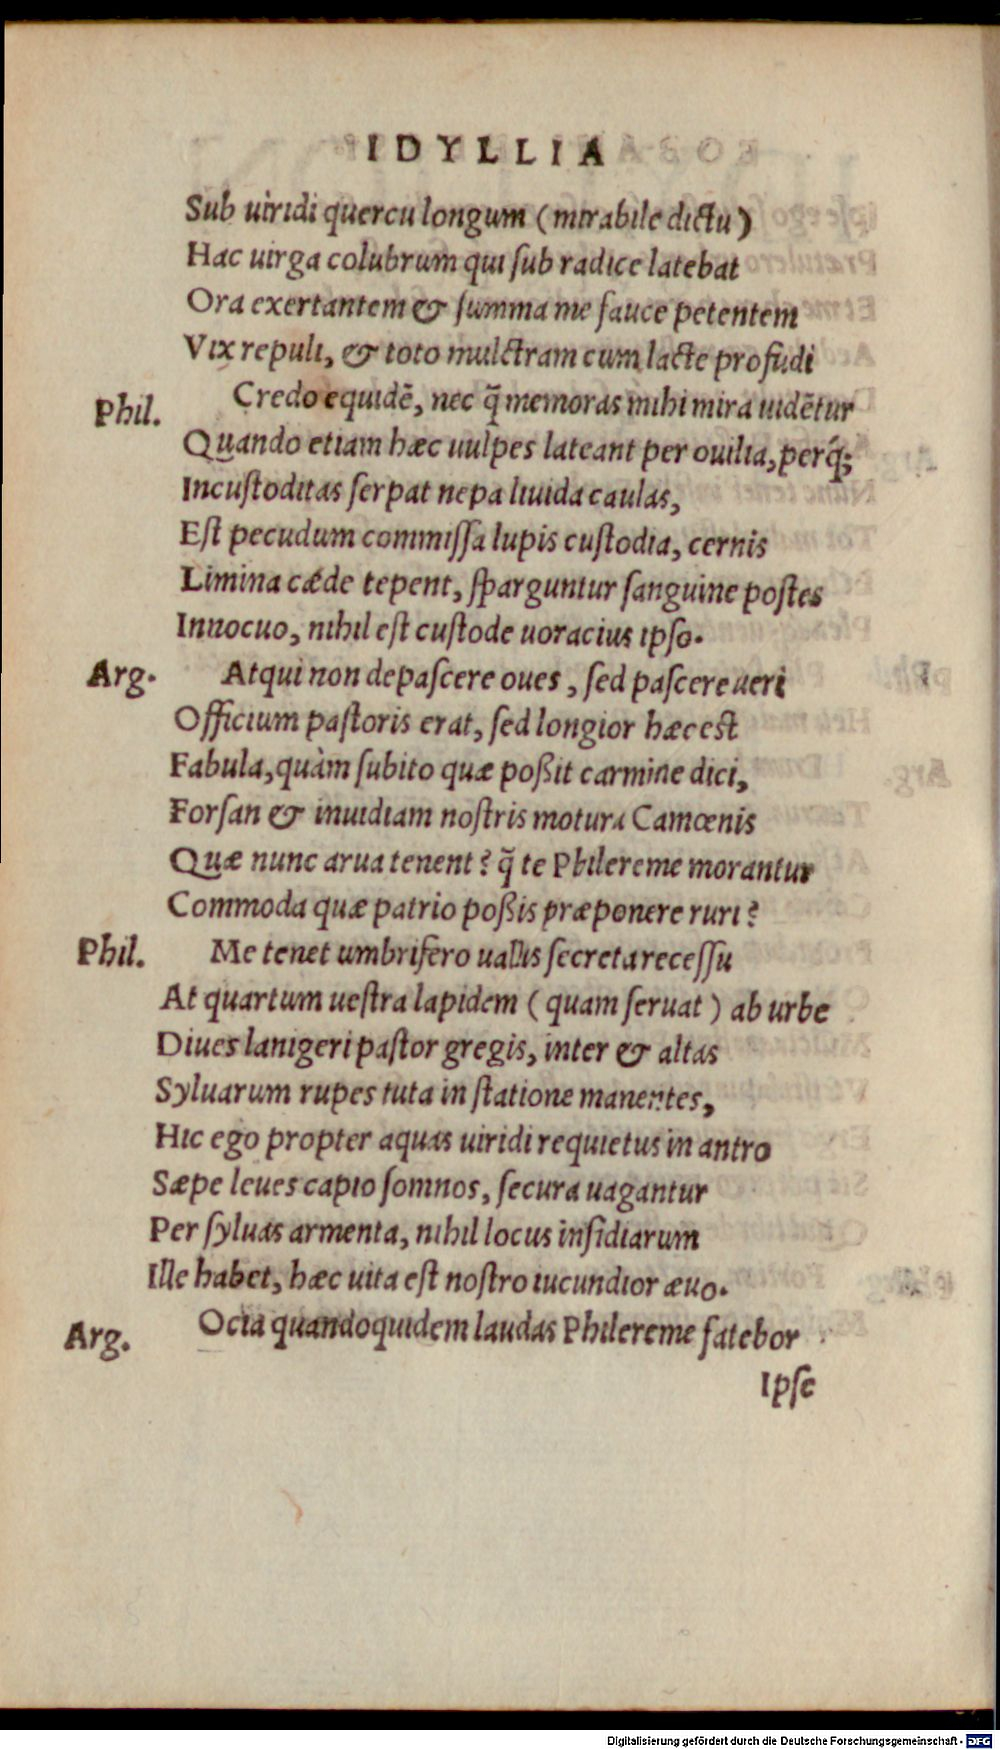 IDYLLIA
Sub uiridi quercu longum (mirabile dictu)
Hac uirga colubrum qui ſub radice latebat
Ora exertantem & ſumma me fauce petentem
Vix repuli, & toto mulctram cum lacte profudi
Phil. Credo equidē, nec q̃ memoras mihi mira uidētur
Quando etiam hæc uulpes lateant per ouilia, perq́;
Incuſtoditas ſerpat nepa liuida caulas,
Eſt pecudum commiſſa lupis cuſtodia, cernis
Limina cæde tepent, ſparguntur ſanguine poſtes
Innocuo, nihil eſt cuſtode uoracius ipſo.
Arg. Atqui non depaſcere oues, ſed paſcere ueri
Officium paſtoris erat, ſed longior hæc eſt
Fabula, quàm ſubito quæ poßit carmine dici,
Forſan & inuidiam noſtris motura Camœnis
Quæ nunc arua tenent? q̃ te Philereme morantur
Commoda quæ patrio poßis præponere ruri?
Phil. Me tenet umbrifero uallis ſecreta receſſu
At quartum ueſtra lapidem (quam ſeruat) ab urbe
Diues lanigeri paſtor gregis, inter & altas
Syluarum rupes tuta in ſtatione manentes,
Hic ego propter aquas uiridi requietus in antro
Sæpe leues capio ſomnos, ſecura uagantur
Per ſyluas armenta, nihil locus inſidiarum
Ille habet, hæc uita eſt noſtro iucundior æuo.
Arg. Ocia quandoquidem laudas Philereme fatebor
Ipſe
Digitalisierung gefördert durch die Deutsche Forschungsgemeinschaft - DFG